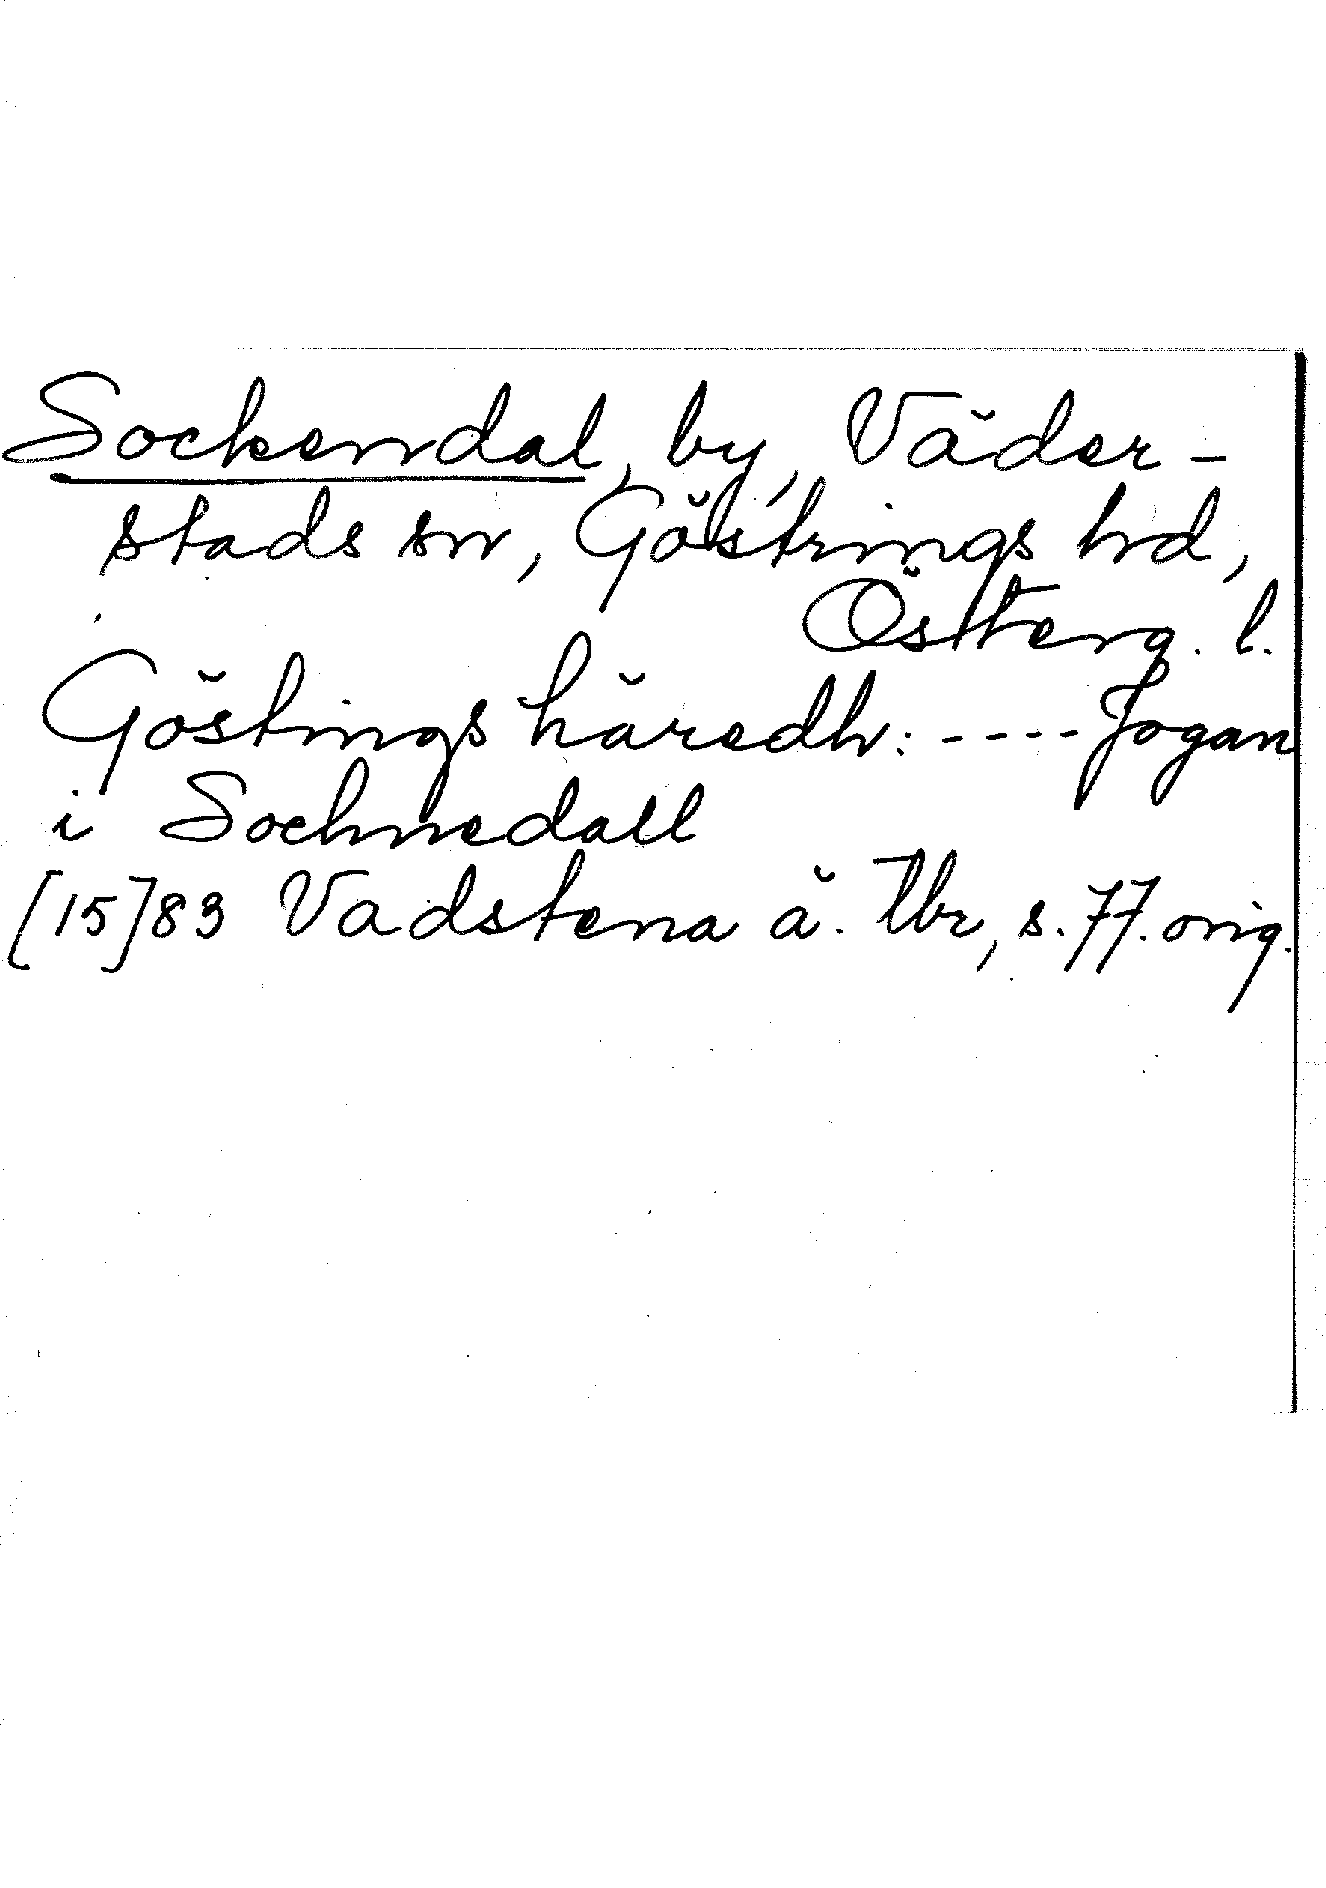 Sockendal, by, Väder-
stads sn, Göstrings hrd,
Österg. l.
Göstings häredh: ---- Jogan
i Sochnedall
[15]83 Vadstena ä. tbr, s. 77. orig.